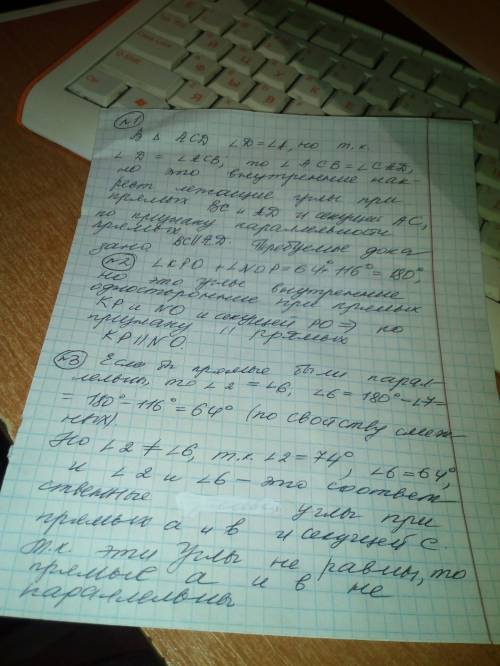 №1
В Δ ACD ∠D=∠A, но т.к.
∠D = ∠ACB, то ∠ACB=∠CAD,
но это внутренние нак-
рест лежащие углы при
прямых BC и AD и секущей AC,
по признаку параллельности
прямых BC||AD. Требуемые дока
зано
№2 ∠KPO + ∠NOP=64°+116°=180°,
но это углы внутренние
односторонние при прямых
KP и NO и секущей PO => по
признаку || прямых
KP||NO
№3 Если бы прямые были парал-
лельны, то ∠2=∠6, ∠6=180°-∠7=
=180°-116°=64° (по свойству смеж-
ных).
Но ∠2≠∠6, т.к. ∠2=74°, ∠6=64°,
и ∠2 и ∠6 – это соответ-
ственные углы при
прямых a и в и секущей c.
Т.к. эти углы не равны, то
прямые a и в не
параллельны